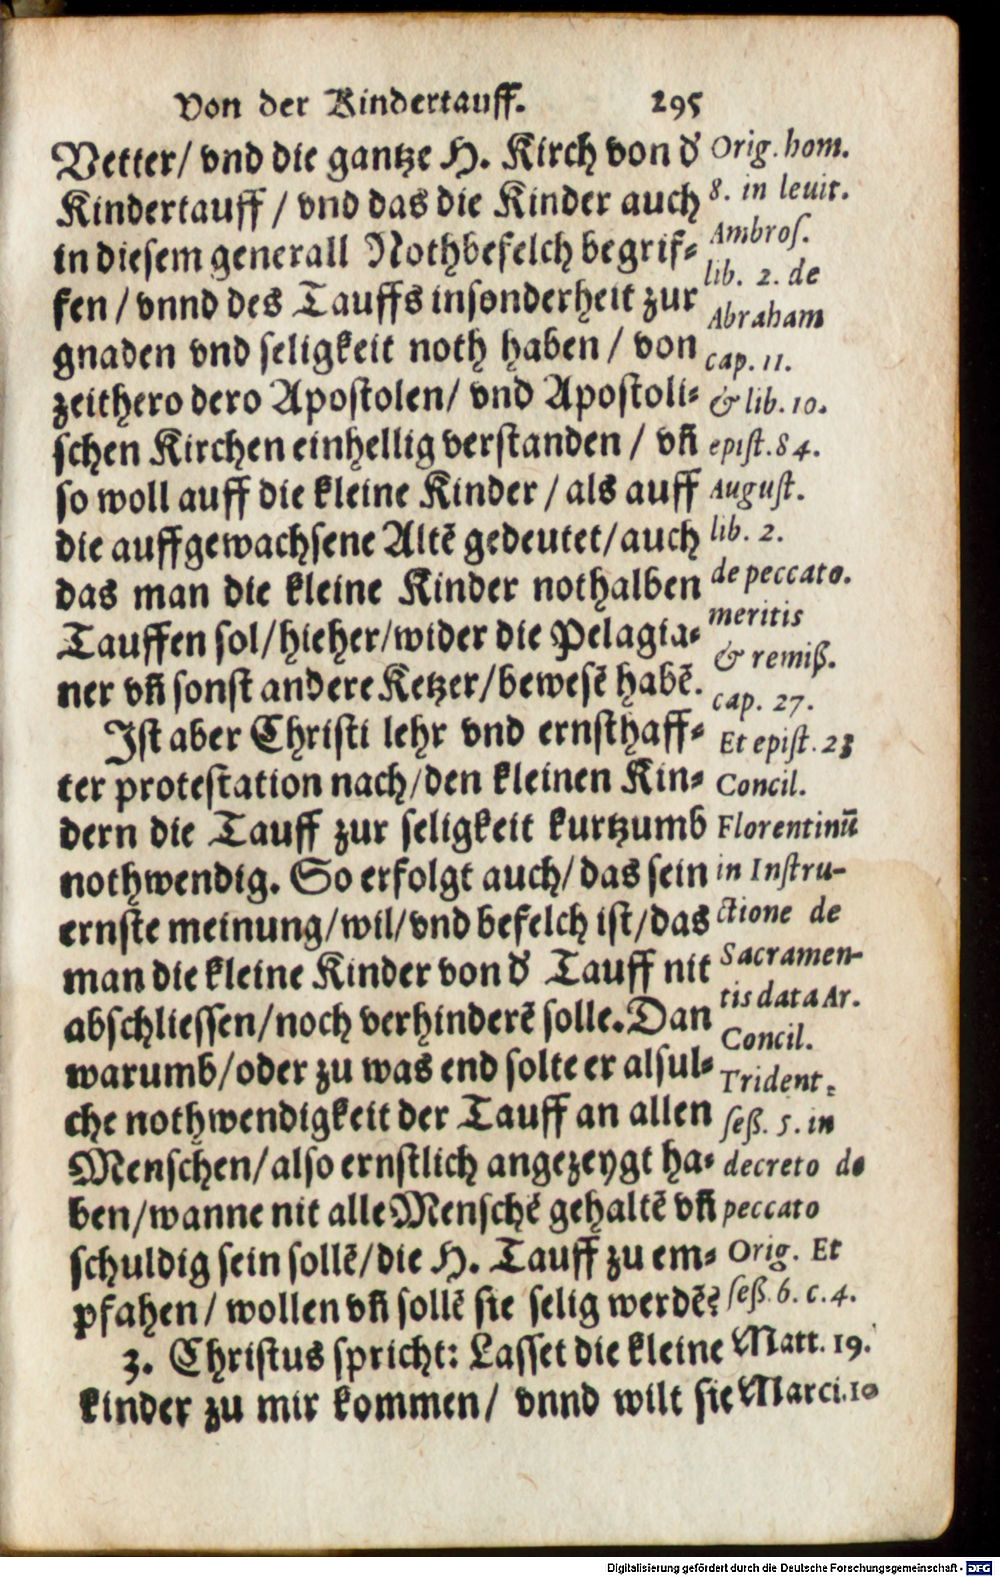 Von der Kindertauff. 295
Vetter/ vnd die gantze H. Kirch von d'
Kindertauff / vnd das die Kinder auch
in diesem generall Nothbefelch begrif⸗
fen / vnnd des Tauffs insonderheit zur
gnaden vnd seligkeit noth haben / von
zeithero dero Apostolen/ vnd Apostoli⸗
schen Kirchen einhellig verstanden / vñ
so woll auff die kleine Kinder / als auff
die auffgewachsene Altẽ gedeutet/ auch
das man die kleine Kinder nothalben
Tauffen sol/ hieher/ wider die Pelagia⸗
ner vñ sonst andere Ketzer/ bewesẽ habẽ.
Ist aber Christi lehr vnd ernsthaff⸗
ter protestation nach/ den kleinen Kin⸗
dern die Tauff zur seligkeit kurtzumb
nothwendig. So erfolgt auch/ das sein
ernste meinung/ wil/ vnd befelch ist/ das
man die kleine Kinder von d' Tauff nit
abschliessen/ noch verhinderẽ solle. Dan
warumb/ oder zu was end solte er alsul⸗
che nothwendigkeit der Tauff an allen
Menschen/ also ernstlich angezeygt ha⸗
ben/ wanne nit alle Menschẽ gehaltẽ vñ
schuldig sein sollẽ/ die H. Tauff zu em⸗
pfahen/ wollen vñ sollẽ sie selig werdẽ?
3. Christus spricht: Lasset die kleine
kinder zu mir kommen/ vnnd wilt sie
Orig. hom.
8. in leuit.
Ambros.
lib. 2. de
Abraham
cap. 11.
& lib. 10.
epist. 84.
August.
lib. 2.
de peccato.
meritis
& remiß.
cap. 27.
Et epist. 23
Concil.
Florentinũ
in Instru-
ctione de
Sacramen-
tis data Ar.
Concil.
Trident.
seß. 5. in
decreto de
peccato
Orig. Et
seß. 6. c. 4.
Matt. 19.
Marci. 10
Digitalisierung gefördert durch die Deutsche Forschungsgemeinschaft - DFG